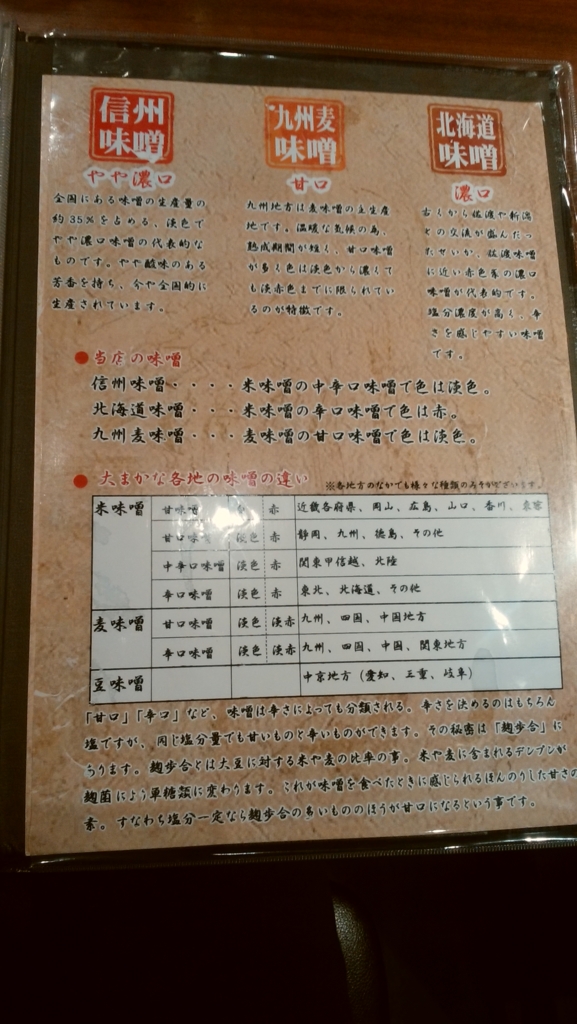 信州
味噌
やや濃口
全国にある味噌の生産量の
約35%を占める、淡色で
やや濃口味噌の代表的な
ものです。やや酸味のある
芳香を持ち、今や全国的に
生産されています。
九州麦
味噌
甘口
九州地方は麦味噌の主生産
地です。温暖な気候の為、
熟成期間が短く、甘口味噌
が多く色は淡色から濃くて
も淡赤色までに限られてい
るのが特徴です。
北海道
味噌
濃口
古くから佐渡や新潟
との交流が盛んだっ
たせいか、佐渡味噌
に近い赤色系の濃口
味噌が代表的です。
塩分濃度が高く、辛
さを感じやすい味噌
です。
●当店の味噌
信州味噌・・・・米味噌の中辛口味噌で色は淡色。
北海道味噌・・・米味噌の辛口味噌で色は赤。
九州麦味噌・・・麦味噌の甘口味噌で色は淡色。
●大まかな各地の味噌の違い
※各地方のなかでも様々な種類のみそがございます。
米味噌 甘味噌 赤 近畿各府県、岡山、広島、山口、香川、東京
甘口味噌 淡色 赤 静岡、九州、徳島、その他
中辛口味噌 淡色 赤 関東甲信越、北陸
辛口味噌 淡色 赤 東北、北海道、その他
麦味噌 甘口味噌 淡色 淡赤 九州、四国、中国地方
辛口味噌 淡色 淡赤 九州、四国、中国、関東地方
豆味噌 中京地方（愛知、三重、岐阜）
「甘口」「辛口」など、味噌は辛さによっても分類される。辛さを決めるのはもちろん
塩ですが、同じ塩分量でも甘いものと辛いものができます。その秘密は「麹歩合」に
あります。麹歩合とは大豆に対する米や麦の比率の事。米や麦に含まれるデンプンが
麹菌によう単糖類に変わります。これが味噌を食べたときに感じられるほんのりした甘さの
素。すなわち塩分一定なら麹歩合の多いもののほうが甘口になるという事です。